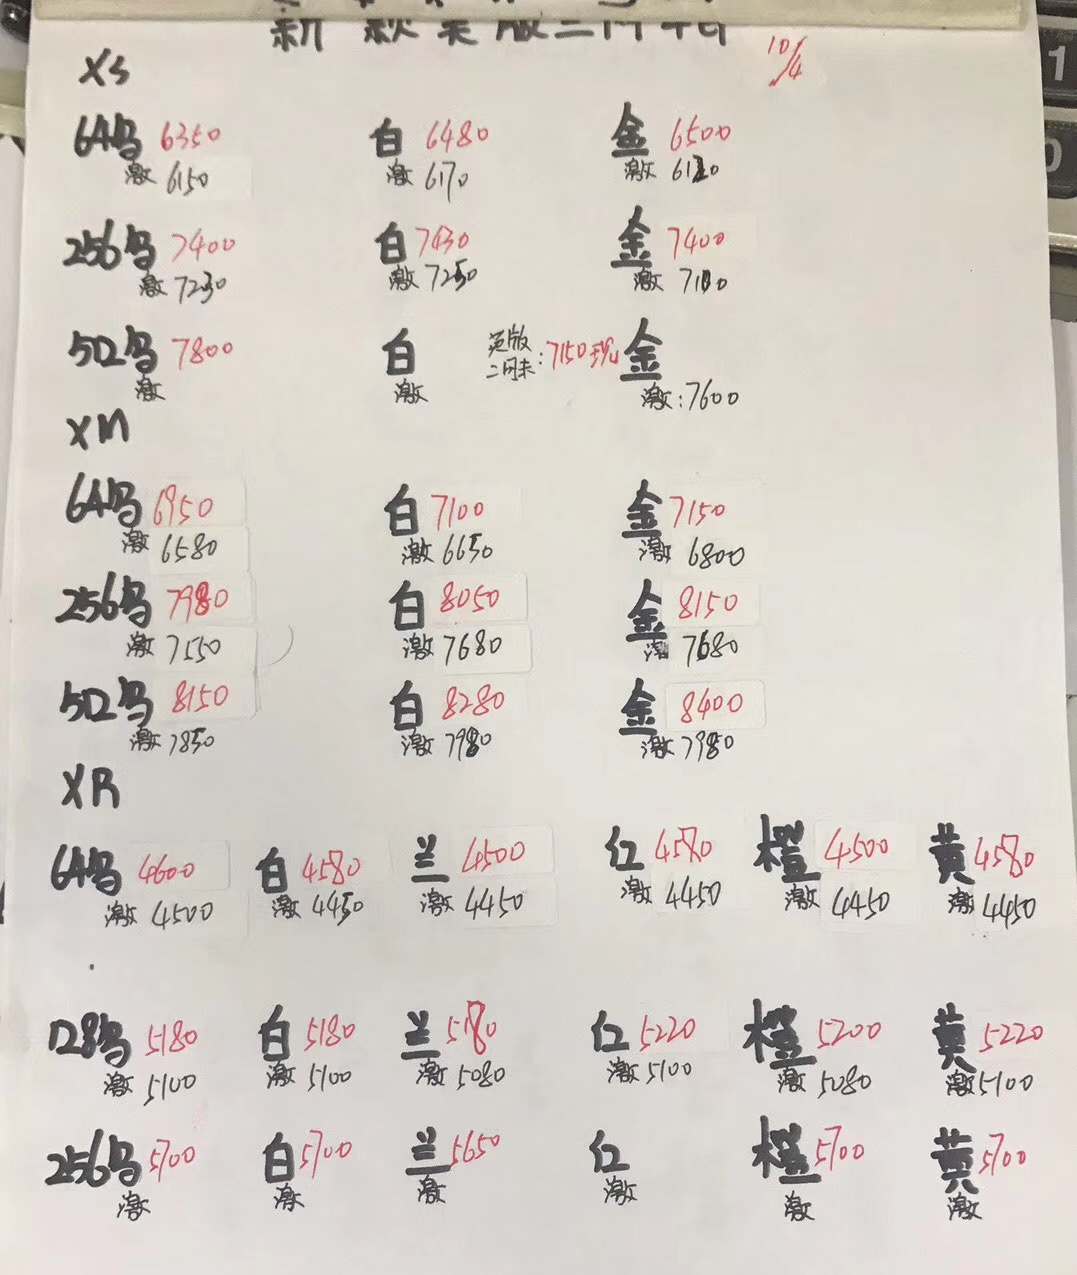 新款美版三网
10/4
XS
64乌 6350 白 6480 金 6500
激 6150 激 6170 激 6120
256乌 7400 白 7430 金 7400
激 7230 激 7250 激 7100
512乌 7800 白 英版 金
二网未:7150
激 激 激:7600
XM
64乌 6950 白 7100 金 7150
激 6580 激 6650 激 6800
256乌 7980 白 8050 金 8150
激 7550 激 7680 激 7680
512乌 8150 白 8280 金 8400
激 7850 激 7980 激 7980
XR
64乌 4600 白 4580 兰 4500 红 4580 橙 4500 黄 4580
激 4500 激 4450 激 4450 激 4450 激 4450 激 4450
128乌 5180 白 5180 兰 5180 红 5220 橙 5200 黄 5220
激 5100 激 5100 激 5080 激 5100 激 5080 激 5100
256乌 5700 白 5700 兰 5650 红 橙 5700 黄 5700
激 激 激 激 激 激